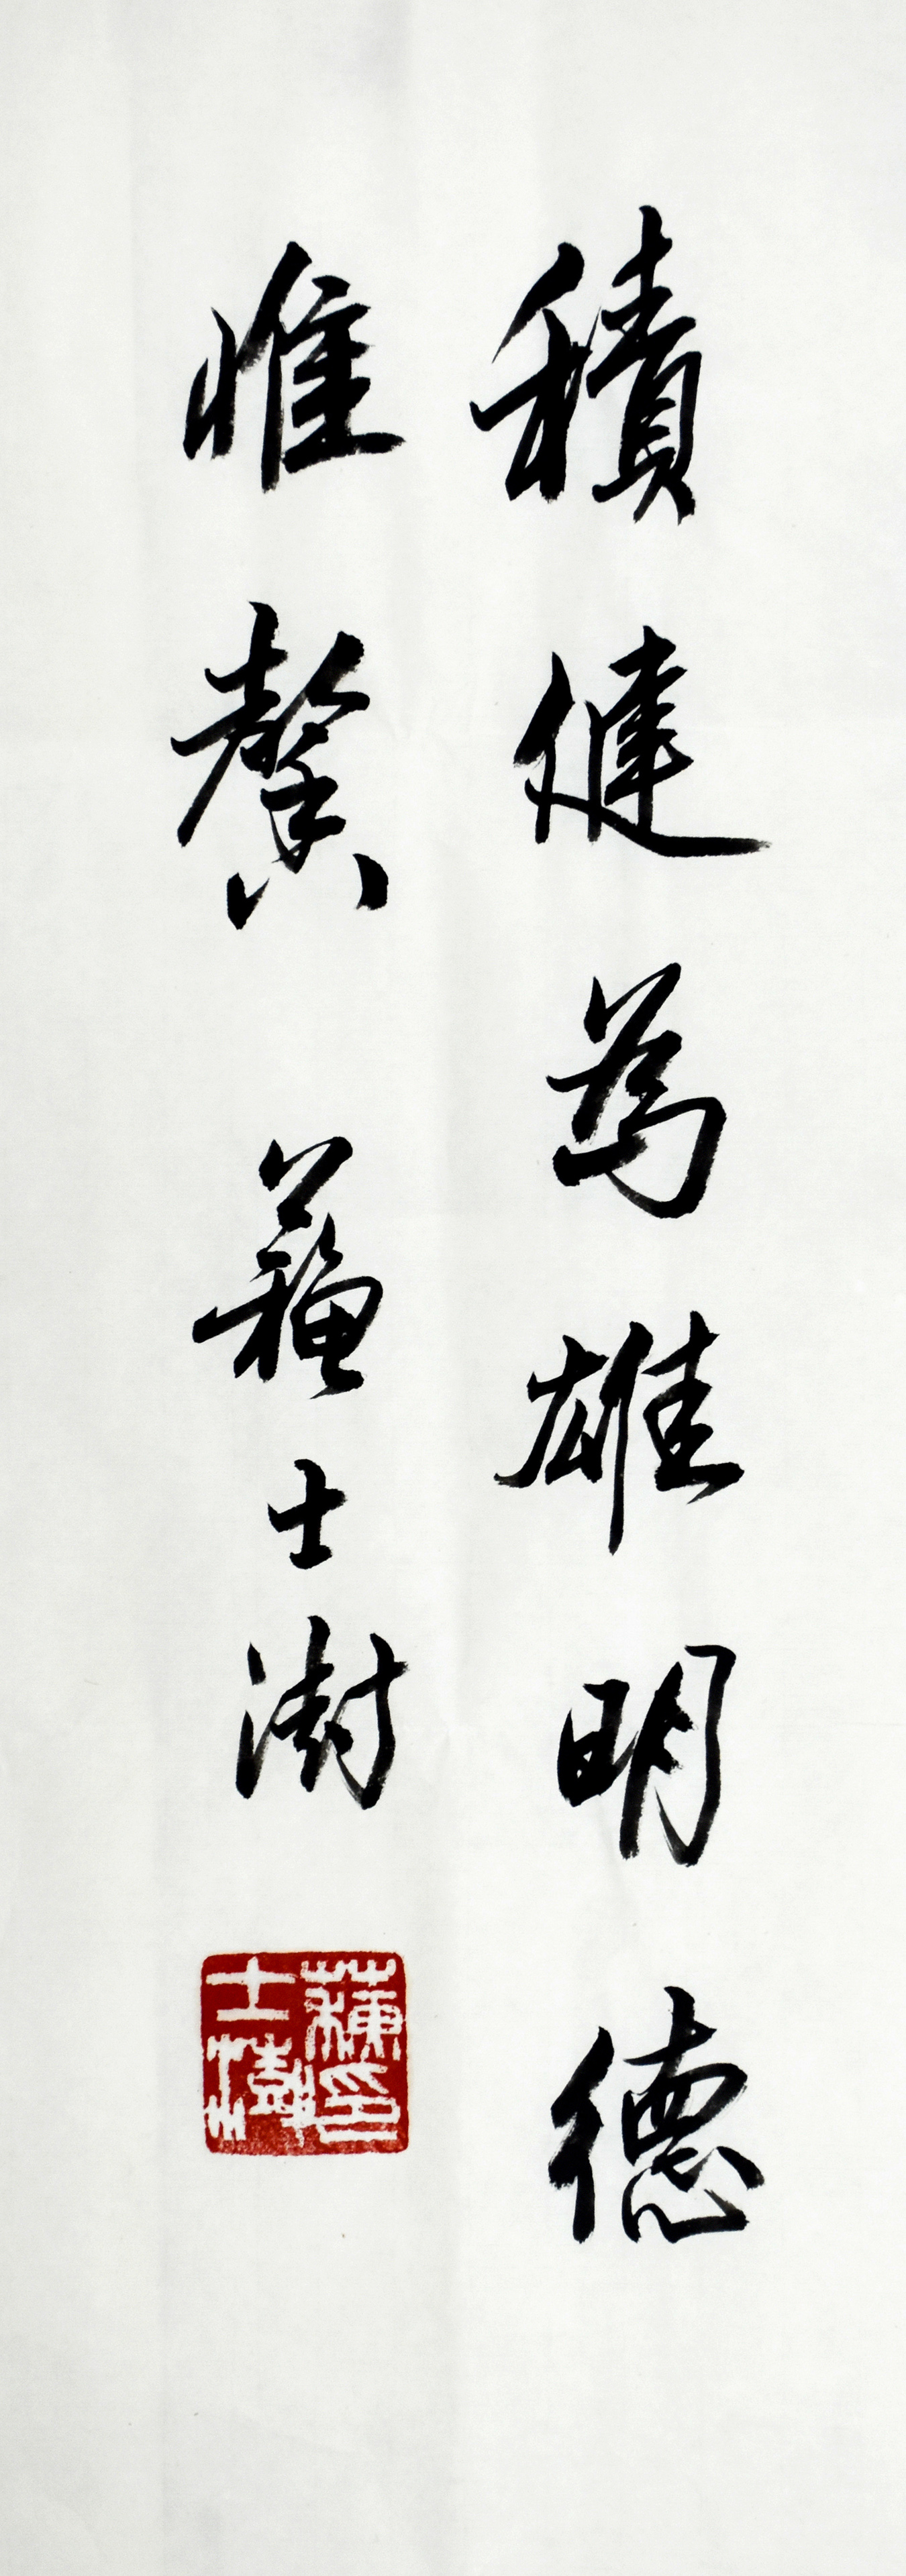 積健為雄明德
惟馨 蘇士澍
蘇士澍印